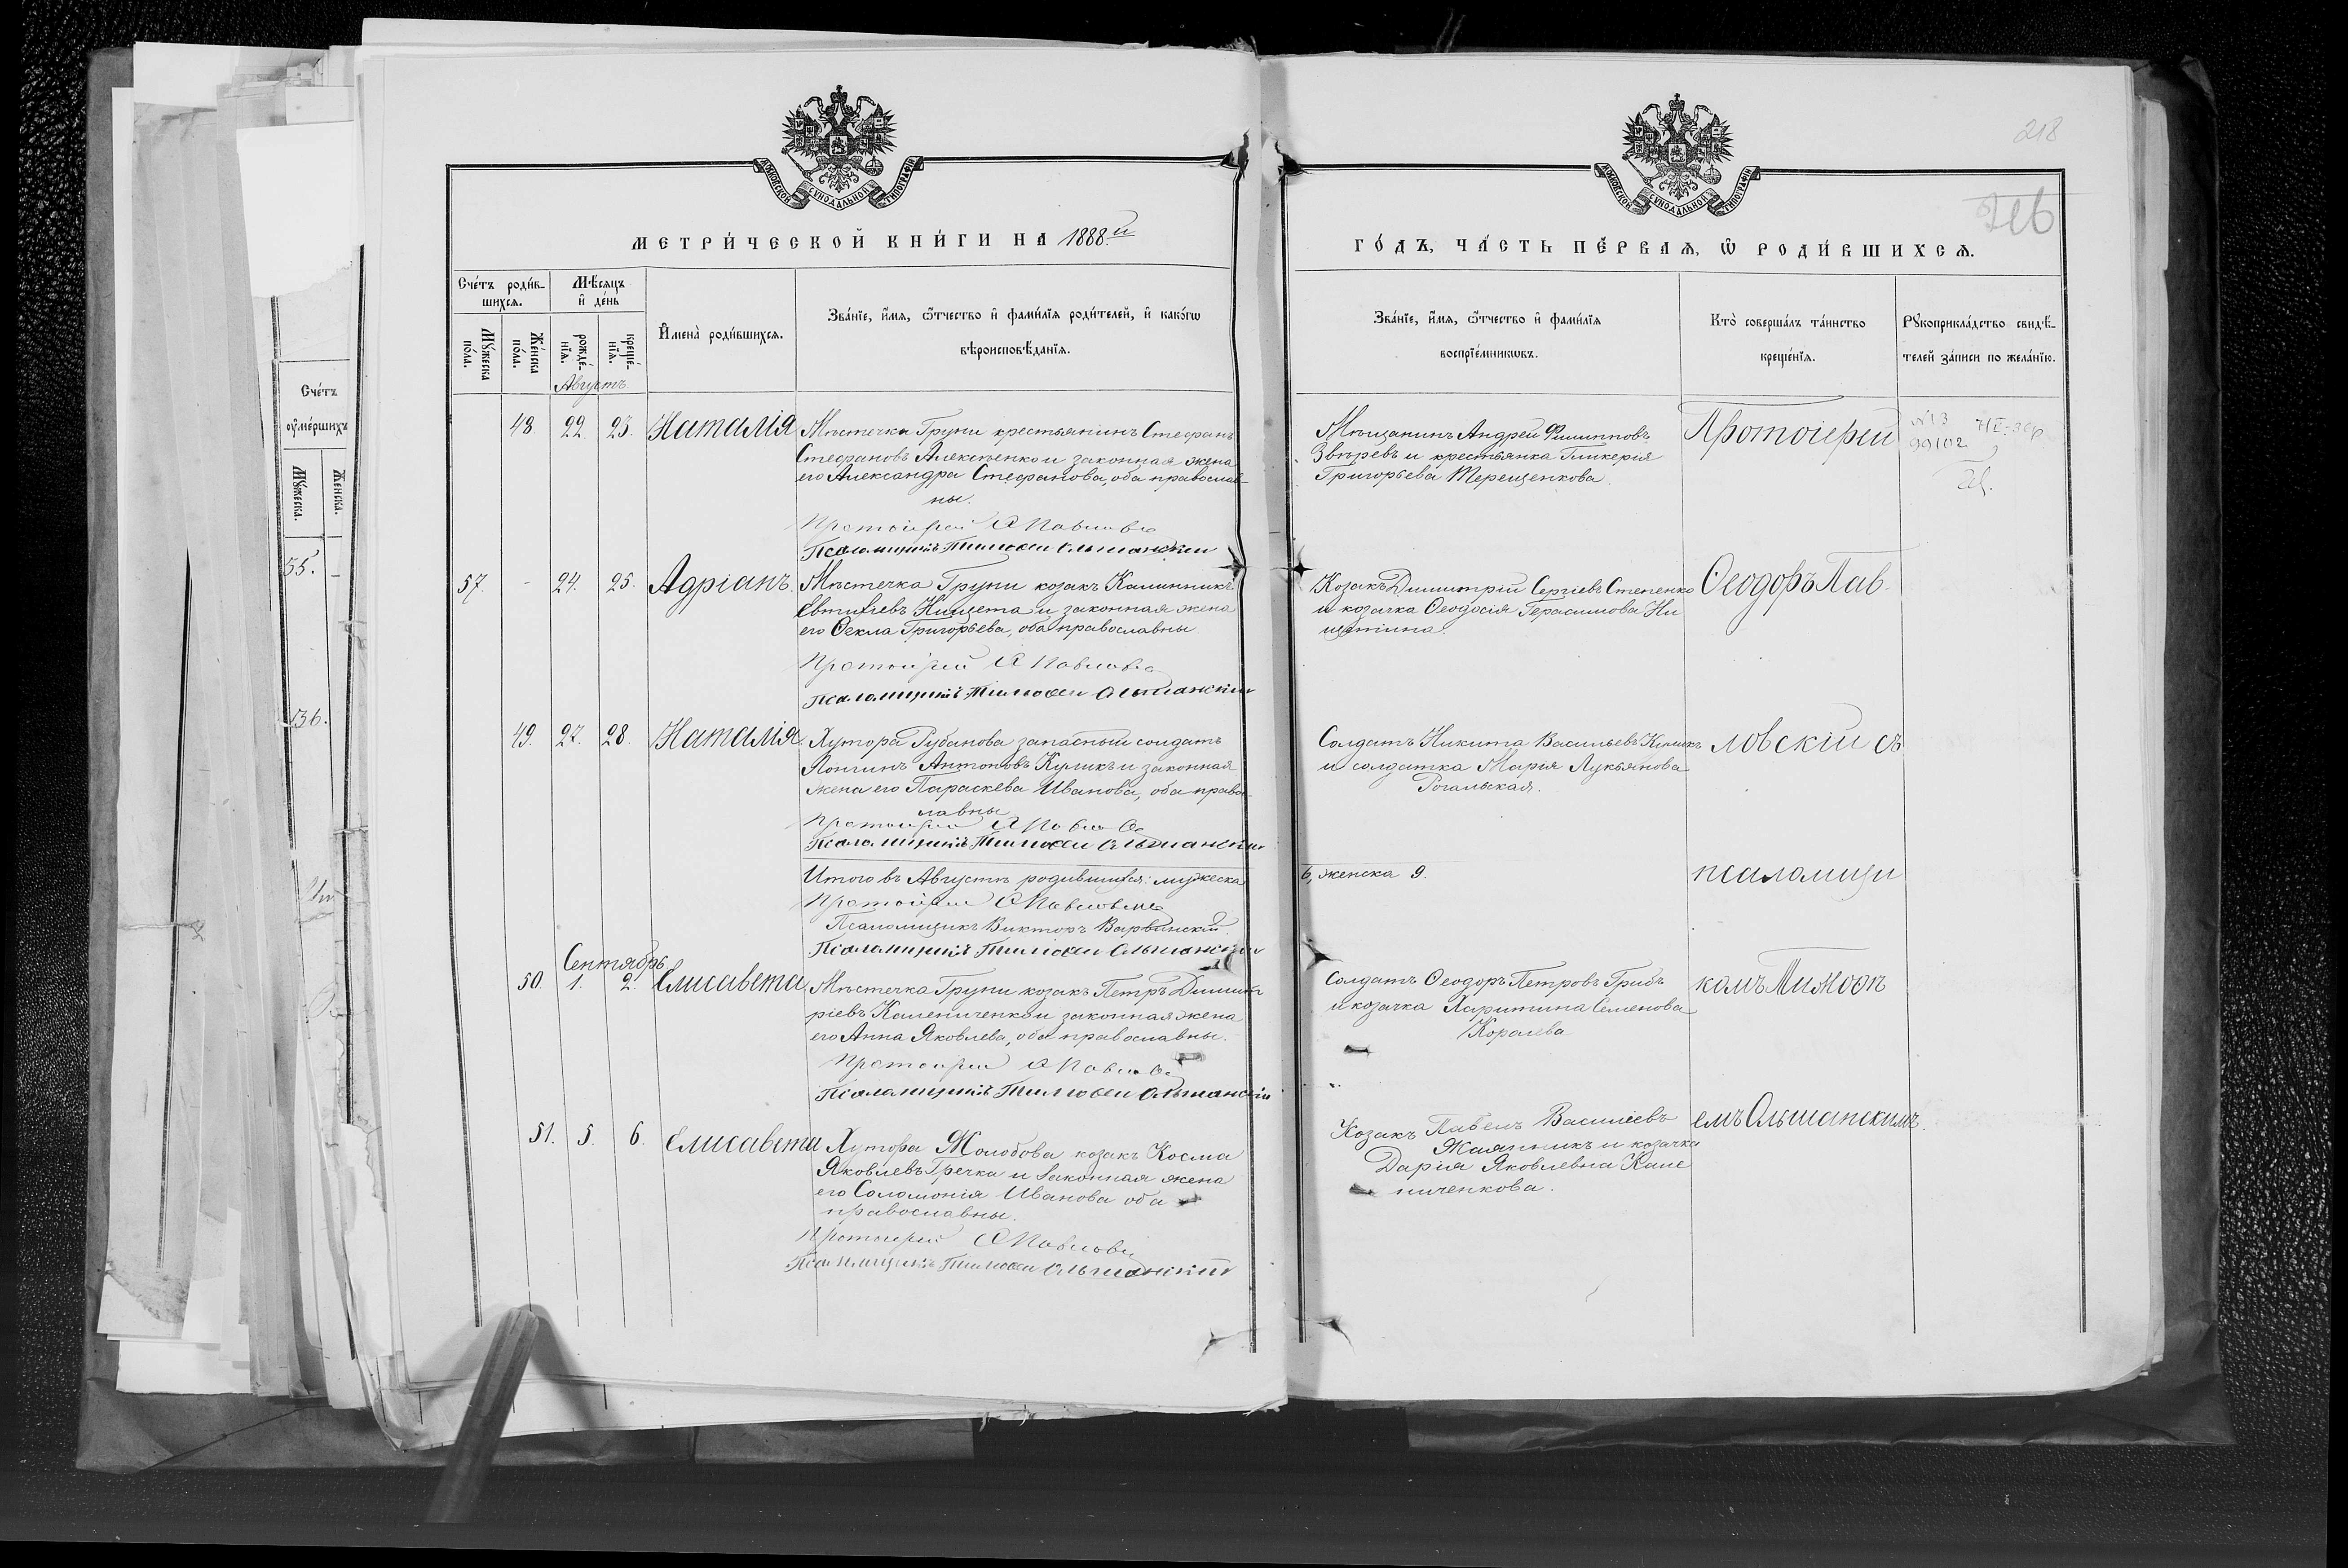 218
МОСКОВСКОЙ СѴНОДАЛЬНОЙ ТИПОГРАФІИ
МОСКОВСКОЙ СѴНОДАЛЬНОЙ ТИПОГРАФІИ
МЕТРИ́ЧЕСКОЙ КНИ́ГИ НА 1888.й
ГО́ДЪ, ЧА́СТЬ ПЕ́РВАѦ, Ѡ РОДИ́ВШИХСѦ.
Сче́тъ роди́в-
шихсѧ.
Мѣ́сѧцъ
и҆ де́нь
Мꙋ́жеска по́ла.
Же́нска по́ла.
рожде́-нїѧ.
креще́-нїѧ.
И҆мена̀ роди́вшихсѧ.
Зва́нїе, и҆́мѧ, ѻ҆́тчество и҆ фами́лїѧ роди́телей, и҆ како́гѡ
вѣроисповѣ́данїѧ.
Зва́нїе, и҆́мѧ, ѻ҆́тчество и҆ фами́лїѧ
воспрїе́мникѡвъ.
Кто̀ соверша́лъ та́инство
креще́нїѧ.
Рꙋкоприкла́дство свидѣ́-
телей за́писи по жела́нїю.
Августъ.
48 22. 23. Наталія
Мѣстечка Груни крестьянинъ Стефанъ
Стефановъ Алексѣенко и законная жена
его Александра Стефанова, оба православ-
ны.
Протоіерей
Псаломщикъ Тимоѳей Ольшанскій
Мѣщанинъ Андрей Филипповъ
Звѣревъ и крестьянка Гликерія
Григорьева Терещенкова.
Протоіерей
57. - 24. 25. Адріанъ.
Мѣстечка Груни козакъ Калинникъ
Евтихіевъ Нищета и законная жена
его Ѳекла Григорьева, оба православны
Протоіерей
Псаломщикъ Тимоѳей Ольшанскій
Козакъ Димитрій Сергіевъ Степенко
и козачка Ѳеодосія Герасимова Ни
щетина.
Ѳеодоръ Пав
49. 27. 28. Наталія
Хутора Рубанова запасный солдатъ
Лонгинъ Антоновъ Куликъ и законная
жена его Параскева Иванова, оба право-
славны
Протоіерей
Псаломщикъ Тимоѳей Ольшанскій
Солдатъ Никита Васильевъ Куликъ
и солдатка Марія Лукьянова
Рогальская.
ловскій съ
Итого въ Августѣ родившихся: мужеска
6, женска 9.
Протоіерей
Псаломщикъ Викторъ Варвинскій.
Псаломщикъ Тимоѳей Ольшанскій
псаломщи
Сентябрь
50. 1. 2. Елисавета
Мѣстечка Груни козакъ Петръ Димит
ріевъ Калениченко и законная жена
его Анна Яковлева, оба православны.
Протоіерей
Псаломщикъ Тимоѳей Ольшанскій
Солдатъ Ѳеодоръ Петровъ Грибъ
и козачка Харитина Семенова
Коралева
комъ Тимоѳѣ
51. 5. 6. Елисавета
Хутора Молобова козакъ Косма
Яковлевъ Гречка и законная жена
его Соломонія Иванова оба
православны.
Протоіерей
Псаломщикъ Тимоѳей Ольшанскій
Козакъ Павелъ Василіевъ
и козачка
Дарія Яковлевна Кале
ниченкова.
емъ Ольшанскимъ.
Сче́тъ
ᲂу҆ме́ршихъ
Мꙋ́жеска.
Же́нска.
55.
56.